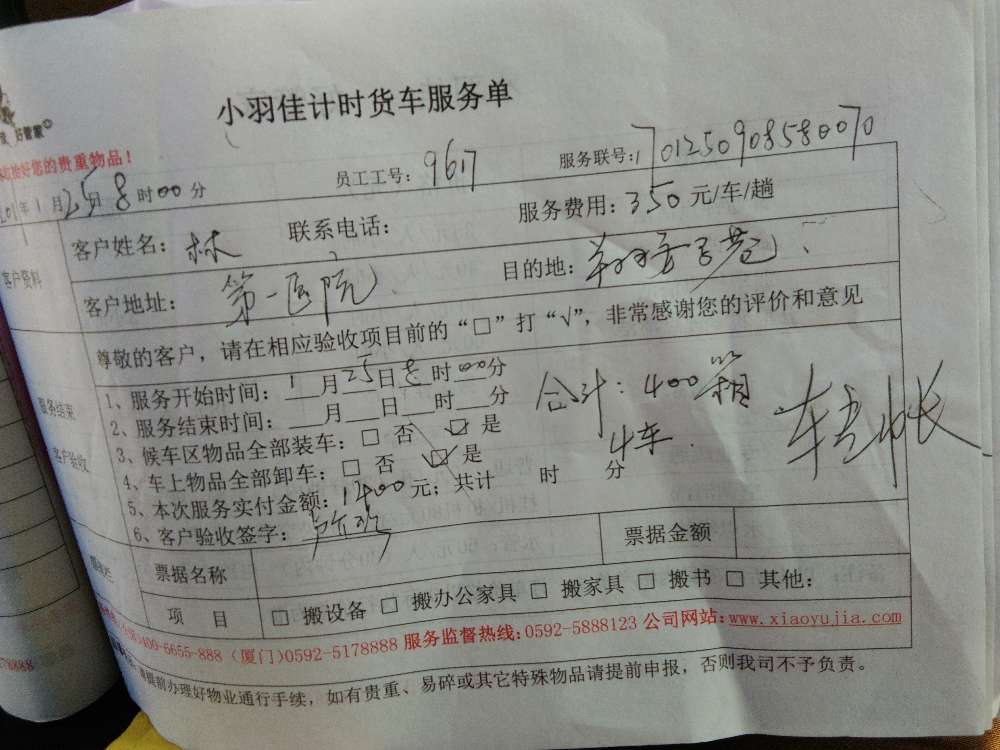 小羽佳计时货车服务单
好您的贵重物品！
201 年1月25日8时00分 员工工号：9617 服务联号：1701250908580070
客户资料
客户姓名：林 联系电话： 服务费用：350元/车/趟
客户地址：第一医院 目的地：
尊敬的客户，请在相应验收项目前的“□”打“√”，非常感谢您的评价和意见
服务结束
客户验收
1、服务开始时间：1月25日8时00分
2、服务结束时间：___月___日___时___分
3、候车区物品全部装车：□ 否 ☑ 是
4、车上物品全部卸车：□ 否 ☑ 是
5、本次服务实付金额：1400元；共计 时 分
6、客户验收签字：
合计：400箱
4车
票据名称 票据金额
项 目 □ 搬设备 □ 搬办公家具 □ 搬家具 □ 搬书 □ 其他：
400-6655-888 (厦门)0592-5178888 服务监督热线：0592-5888123 公司网站：www.xiaoyujia.com
提前办理好物业通行手续，如有贵重、易碎或其它特殊物品请提前申报，否则我司不予负责。